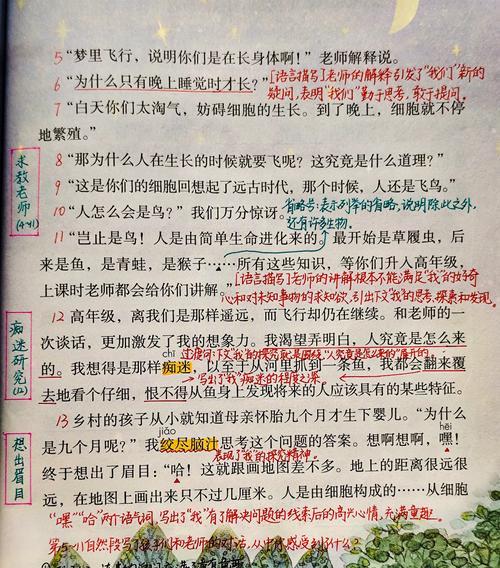 5 “梦里飞行，说明你们是在长身体啊！”老师解释说。
6 “为什么只有晚上睡觉时才长？”[语言描写]老师的解释引发了“我们”新的
疑问，表明“我们”勤于思考，敢于提问。
7 “白天你们太淘气，妨碍细胞的生长。到了晚上，细胞就不停
地繁殖。”
求教老师
(4-11)
8 “那为什么人在生长的时候就要飞呢？这究竟是什么道理？”
9 “这是你们的细胞回想起了远古时代，那个时候，人还是飞鸟。”
10 “人怎么会是鸟？”我们万分惊讶。
省略号：表示列举的省略，说明除此之外，
还有许多生物。
11 “岂止是鸟！人是由简单生命进化来的。最开始是草履虫，后
来是鱼，是青蛙，是猴子……所有这些知识，等你们升入高年级，
上课时老师都会给你们讲解。”
[语言描写]老师的讲解根本不能满足“我”的好奇
心和对未知事物的求知欲，引出下文“我”的思考、探索和发现。
痴迷研究
(12)
12 高年级，离我们是那样遥远，而飞行却仍在继续。和老师的一
次谈话，更加激发了我的想象力。我渴望弄明白，人究竟是怎么来
过渡句：下文“我”的探究就是围绕“人究竟是怎么来的”展开的。
chī
的。我想得是那样痴迷，以至于从河里抓到一条鱼，我都会翻来覆
写出了“我”痴迷的程度之深
去地看个仔细，恨不得从鱼身上发现将来的人应该具有的某些特征。
想出眉目
13 乡村的孩子从小就知道母亲怀胎九个月才生下婴儿。“为什么
jiǎo
hēi
是九个月呢？”我绞尽脑汁思考这个问题的答案。想啊想啊，嘿！
表现了“我”的探究精神。
终于想出了眉目：“哈！这就跟画地图差不多。地上的距离很远很
远，在地图上画出来只不过几厘米。人是由细胞构成的……从细胞
“嘿”“哈”两个语气词，写出了“我”有了解决问题的线索后的高兴心情，充满童趣。
第5-11自然段写了孩子们和老师的对话，从中体感受到了什么？